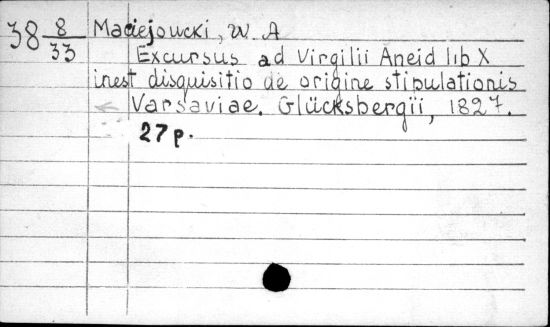 38 8/33 Maciejowcki, W. A
Excursus ad Virgilii Aneid lib X
inest disquisitio de origine stipulationis
Varsaviae. Glücksbergii, 1827.
27 p.